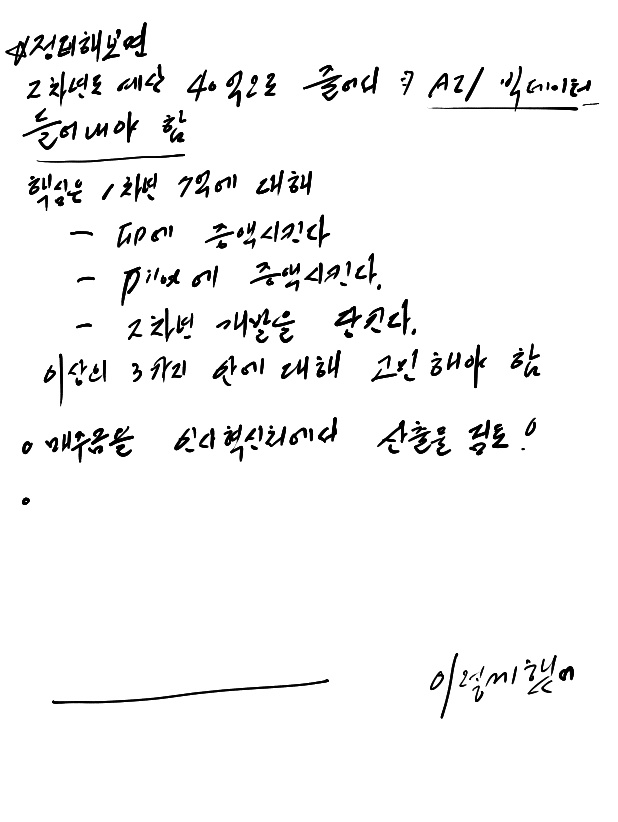 정리해보면
2차년도 예산 40억으로 줄어서 ⇒ AI/ 빅데이터
들어내야 함
핵심은 1차년 7억에 대해
- 에 증액시킨다
- pilot에 증액시킨다.
- 2차년 개발을 당긴다.
이상의 3가지 안에 대해 고민해야 함
o 매수금을 인사혁신처에서 산출을 검토!
o